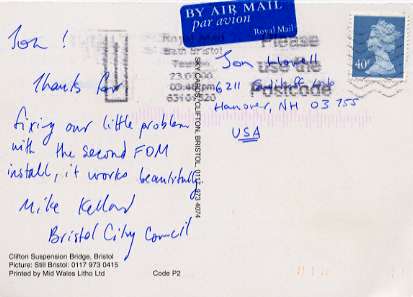 Jon !
Thanks for
fixing our little problem
with the second FDM
install, it works beautifully
Mike Kellow
Bristol City Council
Clifton Suspension Bridge, Bristol
Picture: Still Bristol: 0117 973 0415
Printed by Mid Wales Litho Ltd
Code P2
SKYCARDS, CLIFTON, BRISTOL 0117 973 4074
BY AIR MAIL
par avion
Royal Mail
Royal Mail
Bath Bristol
Please
use the
Postcode
03:46pm
40P
Jon Howell
6211
Hanover, NH 03755
USA